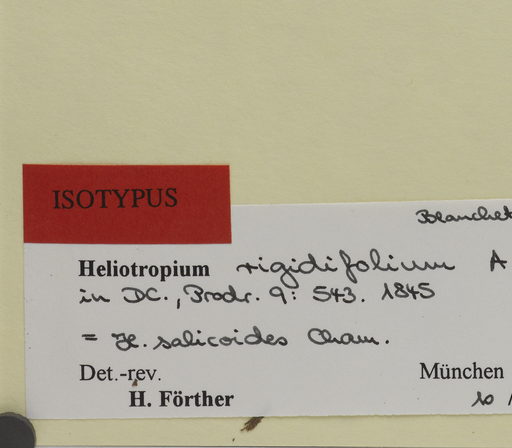 ISOTYPUS
Blanchet
Heliotropium rigidifolium A
in DC., Prodr. 9: 543. 1845
= H. salicoides Cham.
Det.-rev. München
H. Förther